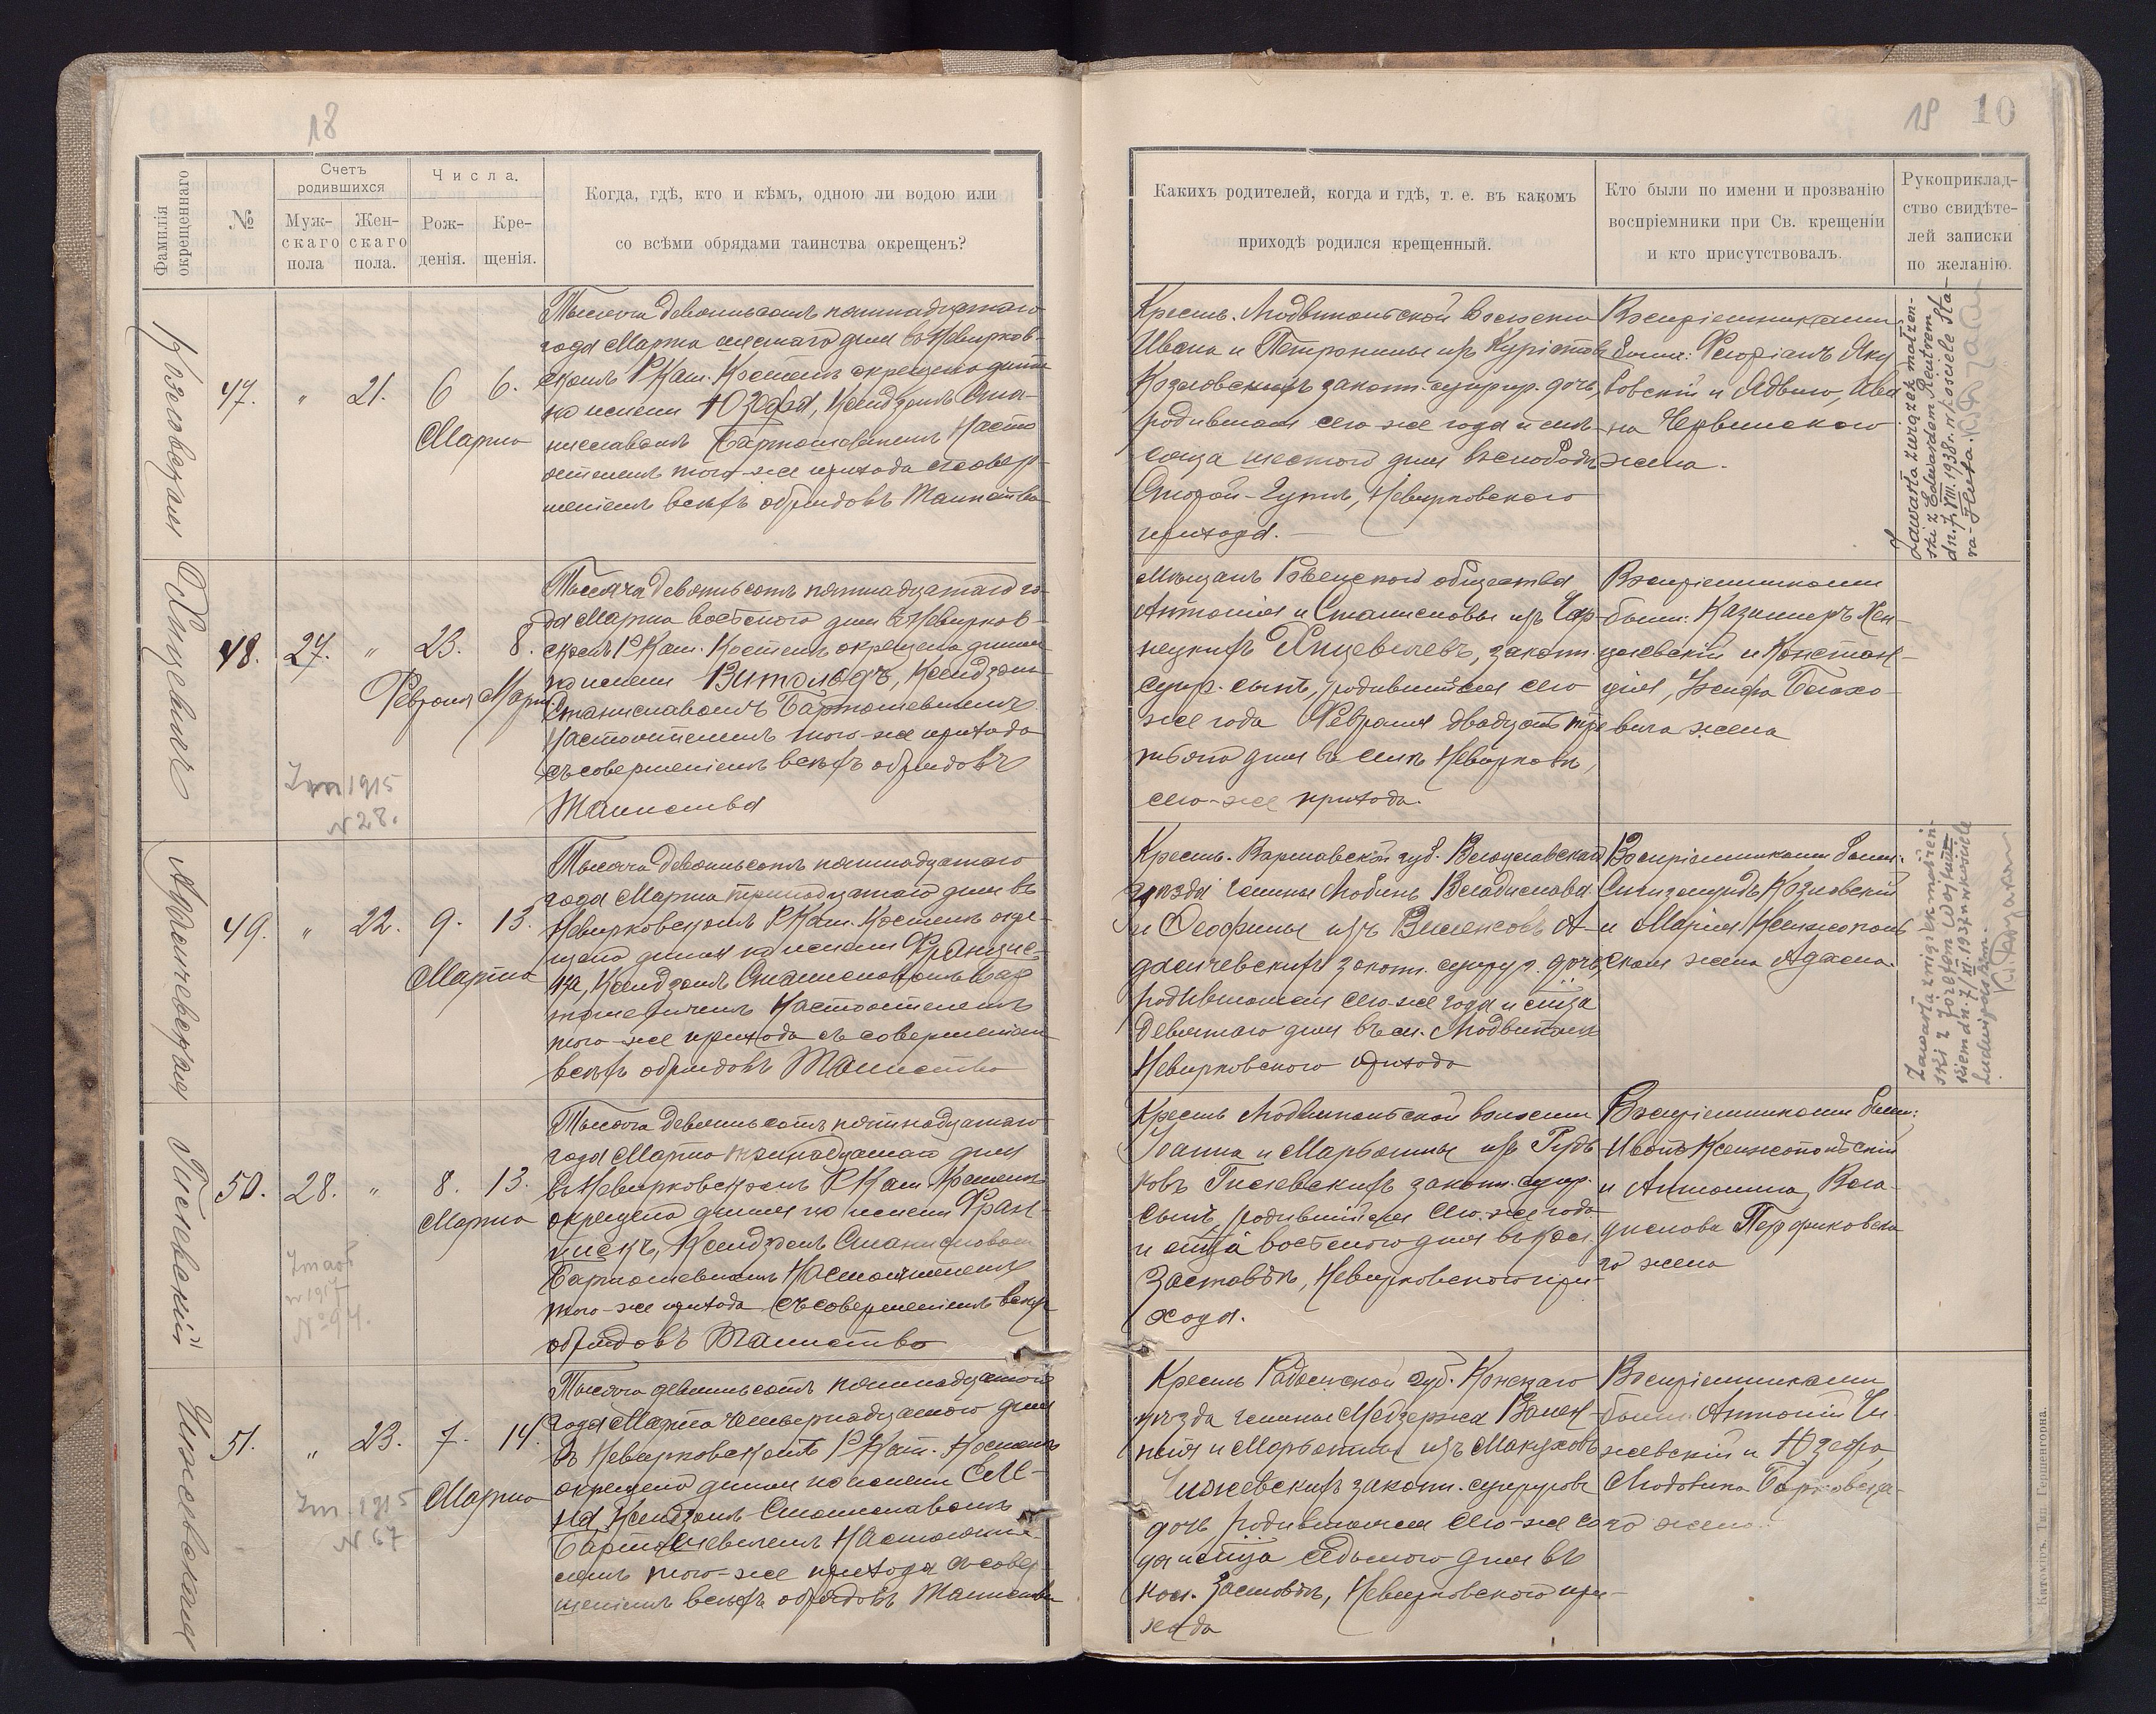 18
Фамилія окрещеннаго
№
Счетъ родившихся
Муж-
скаго
пола
Жен-
скаго
пола.
Числа.
Рож-
денія.
Кре-
щенія.
Когда, гдѣ, кто и кѣмъ, одною ли водою или
со всѣми обрядами таинства окрещенъ?
Козловская
47.
"
21.
6
6.
Марта
Тысяча девятьсотъ пятнадцатаго
года Марта шестаго дня въ Невирков-
скомъ Р Кат. Костелѣ окрещено дитя
по имени Юзефа, Ксендзомъ Ста-
ниславомъ Бартошевичемъ Насто
ятелемъ того-же прихода съ совер-
шеніемъ всѣхъ обрядовъ Таинства
Яцевичъ
48.
27.
"
23.
8.
Февраля Марта
Zm 1915
N 28.
Тысяча девятьсотъ пятнадцатаго го-
да Марта восьмого дня въ Невирков-
скомъ Р Кат. Костелѣ окрещено дитя
по имени Витольдъ, Ксендзомъ
Станиславомъ Бартошевичемъ
Настоятелемъ того-же прихода
съ совершеніемъ всѣхъ обрядовъ
Таинства
Адамчевская
49.
"
22.
9.
13.
Марта
Тысяча девятьсотъ пятнадцатаго
года Марта тринадцатаго дня въ
Невирковскомъ Р Кат. Костелѣ окре-
щено дитя по имени Францис-
ка, Ксендзомъ Станиславомъ Бар
тошевичемъ Настоятелемъ
того-же прихода съ совершеніемъ
всѣхъ обрядовъ Таинства
50.
28.
"
8.
13.
Марта
N 94.
Тысяча девятьсотъ пятнадцатаго
года Марта тринадцатаго дня
въ Невирковскомъ Р Кат Костелѣ
окрещено дитя по имени Фран-
цискъ, Ксендзомъ Станиславомъ
Бартошевичемъ Настоятелемъ
того-же прихода съ совершеніемъ всѣхъ
обрядовъ Таинства
Чижевская
51.
"
23.
7.
14.
Марта
Zm 1915
N 67
Тысяча девятьсотъ пятнадцатаго
года Марта четырнадцатаго дня
въ Невирковскомъ Р Кат. Костелѣ
окрещено дитя по имени
Ксендзомъ Станиславомъ
Бартошевичемъ Настояте-
лемъ того-же прихода съ совер-
шеніемъ всѣхъ обрядовъ Таинства
19 10
Какихъ родителей, когда и гдѣ, т. е. въ какомъ
приходѣ родился крещенный.
Кто были по имени и прозванію
воспріемники при Св. крещеніи
и кто присутствовалъ.
Рукоприклад-
ство свидѣте-
лей записки
по желанію.
Крестъ. Людвипольской волости
Ивана и Петронели изъ
Козловскихъ законн. супруг. дочь,
родившаяся сего же года и мѣ-
сяца шестого дня въ слободѣ
Невирковскаго
прихода.
Воспріемниками
были: Флоріанъ Яку
бовскій и Ядвига, Ива
на Червинскаго
жена.
Zawarła związek małżeń-
ski z Edwardem
dn. 7. VIII. 1938 r. w kosciele Sta-
ra-Huta.
Мѣщанъ Ровенского общества
Антонія и Станиславы изъ Чар-
нецкихъ Яцевичевъ, законн.
супр. сынъ, родившійся сего
же года Февраля двадцать тре
тьяго дня въ селѣ Невирковѣ,
сего-же прихода.
Воспріемниками
были: Казимиръ Хен-
цинскій и Констан-
ція,
вича жена
Крестъ. Варшавской губ. Влоцлавскаго
уѣзда гмины Любень Владислава
и Теофили изъ А-
дамчевскихъ законн. супруг. дочь,
родившаяся сего-же года и мѣсяца
девятаго дня въ м. Людвиполѣ
Невирковскаго прихода
Воспріемниками были:
Сигизмундъ Козловскій
и Марія Ксенжополь-
ская жена Адама.
Zawarła związek małżeń-
ski z Józefem
kiem dn. 7/XI. 1937 r. w kosciele
Ludwipolskim.
Крестъ Людвипольской волости
Іоанна и Марьянны изъ Рудь
ковъ законн. супр.
сынъ, родившійся сего-же года
и мѣсяца восьмого дня въ кол.
Заставѣ, Невирковскаго при-
хода.
Воспріемниками были:
Иванъ Ксенжопольскій
и Антонина, Вла-
дислава
го жена
Крестъ Радомской губ. Конскаго
уѣзда гмины Мѣдзержа Вален-
тія и Марьянны изъ
Чижевскихъ законн. супруговъ
дочь, родившаяся сего-же го
да и мѣсяца седьмого дня въ
кол. Заставѣ, Невирковскаго при-
хода
Воспріемниками
были: Антоній Чи-
жевскій и Юзефа,
Людовика Бартковска-
го жена.
Житоміръ. Тип. Гершенгорна.